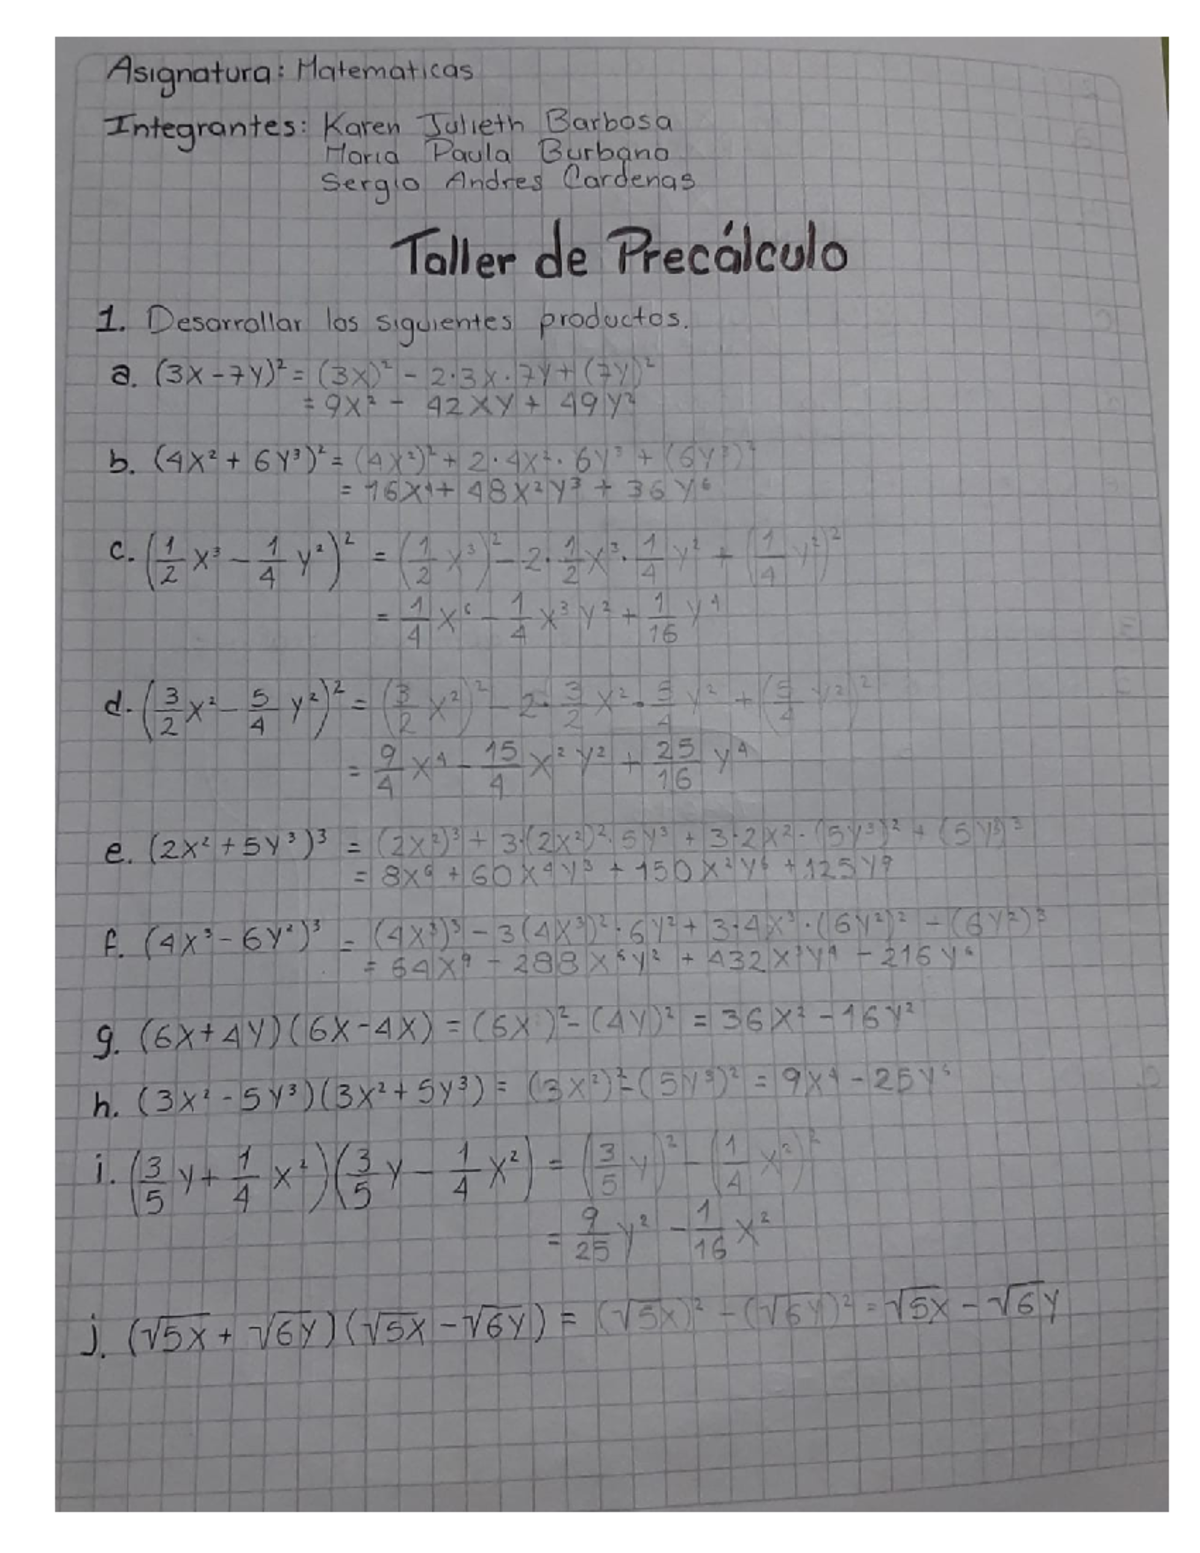 Asignatura: Matematicas
Integrantes: Karen Julieth Barbosa
Maria Paula Burbano
Sergio Andres Cardenas
Taller de Precálculo
1. Desarrollar los siguientes productos.
a. (3x-7y)² = (3x)² - 2·3x·7y + (7y)²
= 9x² - 42xy + 49y²
b. (4x² + 6y³)² = (4x²)² + 2·4x²·6y³ + (6y³)²
= 16x⁴ + 48x²y³ + 36y⁶
c. (1/2 x³ - 1/4 y²)² = (1/2 x³)² - 2·1/2 x³·1/4 y² + (1/4 y²)²
= 1/4 x⁶ - 1/4 x³y² + 1/16 y⁴
d. (3/2 x² - 5/4 y²)² = (3/2 x²)² - 2·3/2 x²·5/4 y² + (5/4 y²)²
= 9/4 x⁴ - 15/4 x²y² + 25/16 y⁴
e. (2x² + 5y³)³ = (2x²)³ + 3·(2x²)²·5y³ + 3·2x²·(5y³)² + (5y³)³
= 8x⁶ + 60x⁴y³ + 150x²y⁶ + 125y⁹
f. (4x³ - 6y²)³ = (4x³)³ - 3(4x³)²·6y² + 3·4x³·(6y²)² - (6y²)³
= 64x⁹ - 288x⁶y² + 432x³y⁴ - 216y⁶
g. (6x+4y)(6x-4x) = (6x)² - (4y)² = 36x² - 16y²
h. (3x² - 5y³)(3x² + 5y³) = (3x²)² - (5y³)² = 9x⁴ - 25y⁶
i. (3/5 y + 1/4 x²)(3/5 y - 1/4 x²) = (3/5 y)² - (1/4 x²)²
= 9/25 y² - 1/16 x²
j. (√5x + √6y)(√5x - √6y) = (√5x)² - (√6y)² = √5x - √6y